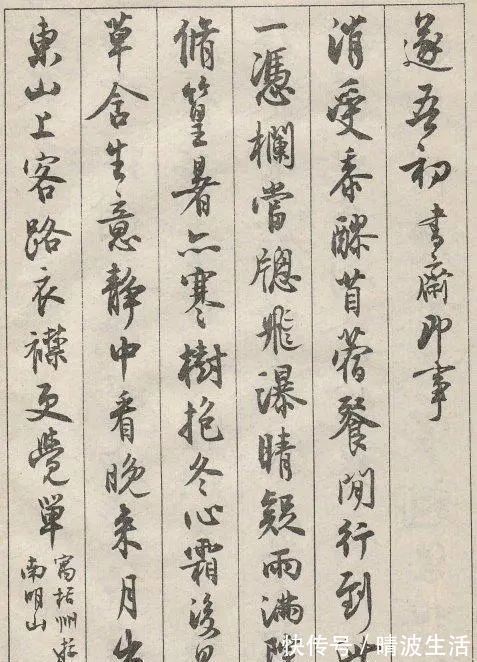 遂吾初 書齋即事
消受黍醪苜蓿餐閒行到
一憑欄當牕飛瀑晴疑雨滿
脩篁暑亦寒樹抱冬心霜後
草含生意靜中看晚來月
東山上客路衣襟更覺單
寓括州
南明山
快传号/晴波生活